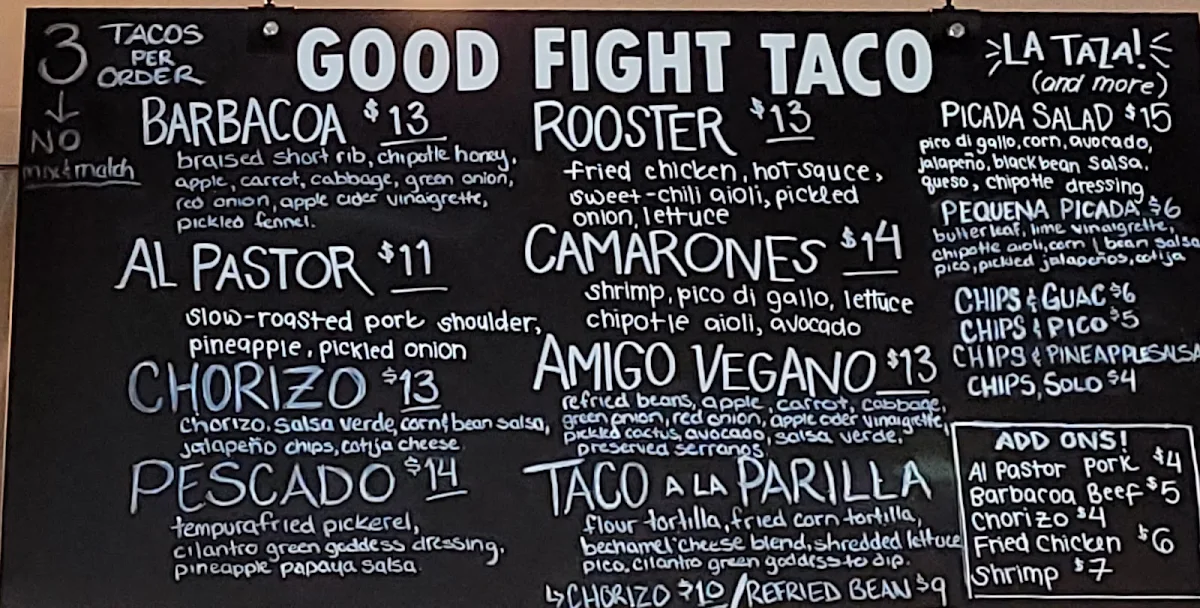 3 TACOS
PER
ORDER
NO
mix & match
GOOD FIGHT TACO
BARBACOA $13
braised short rib, chipotle honey,
apple, carrot, cabbage, green onion,
red onion, apple cider vinaigrette,
pickled fennel.
AL PASTOR $11
slow-roasted pork shoulder,
pineapple, pickled onion
CHORIZO $13
Chorizo, salsa verde, corn & bean salsa,
jalapeño chips, cotija cheese.
PESCADO $14
tempura fried pickerel,
cilantro green goddess dressing,
pineapple papaya salsa.
ROOSTER $13
fried chicken, hot sauce,
sweet-chili aioli, pickled
onion, lettuce
CAMARONES $14
shrimp, pico di gallo, lettuce
chipotle aioli, avocado
AMIGO VEGANO $13
refried beans, apple, carrot, cabbage,
green onion, red onion, apple cider vinaigrette,
pickled cactus, avocado, salsa verde,
preserved serranos.
TACO A LA PARILLA
flour tortilla, fried corn tortilla,
bechamel cheese blend, shredded lettuce
pico, cilantro green goddess to dip.
↳ CHORIZO $10 / REFRIED BEAN $9
LA TAZA!
(and more)
PICADA SALAD $15
pico di gallo, corn, avocado,
jalapeño, black bean salsa,
queso, chipotle dressing
PEQUENA PICADA $6
butter leaf, lime vinaigrette,
chipotle aioli, corn & bean salsa
pico, pickled jalapeños, cotija
CHIPS & GUAC $6
CHIPS & PICO $5
CHIPS & PINEAPPLE SALSA
CHIPS, SOLO $4
ADD ONS!
Al Pastor Pork $4
Barbacoa Beef $5
Chorizo $4
Fried Chicken $6
Shrimp $7